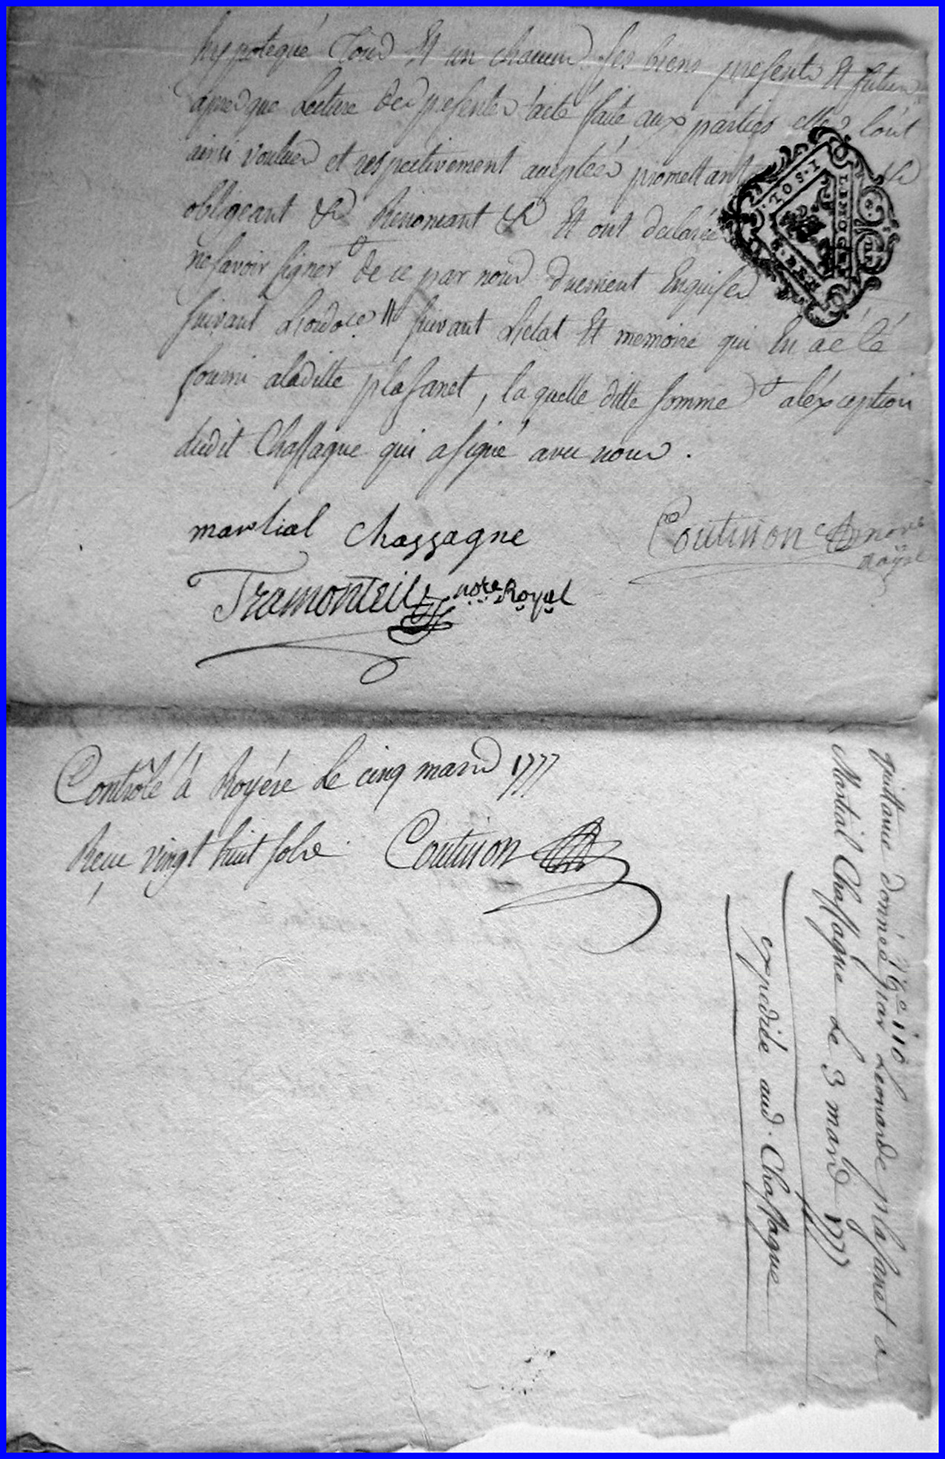 hypotequé Tous Et un chacun ses biens presents Et futurs
apres que Lecture des presentes a eté faite aux parties elles l'ont
ainsi voulues et respectivement acceptées promettant &
obligeant & Renoncant & Et ont declaré
ne savoir signer de ce par nous duement Enquises
suivant Lordce // suivant L'etat Et memoire qui Lui a eté
fourni aladitte plasanet, la quelle ditte somme à léxception
dudit Chassagne qui a signé avec nous.
martial chassagne
Coutisson nore Royal
Tramonteil nore Royal
I · SOL ·
LIMOGES
Contrôlé à Royére Le cinq mars 1777
Reçu vingt huit sols Coutisson
quittance donnée par Leonarde plasanet a
Martial Chassagne Le 3 mars 1777
expediée aud. Chassagne